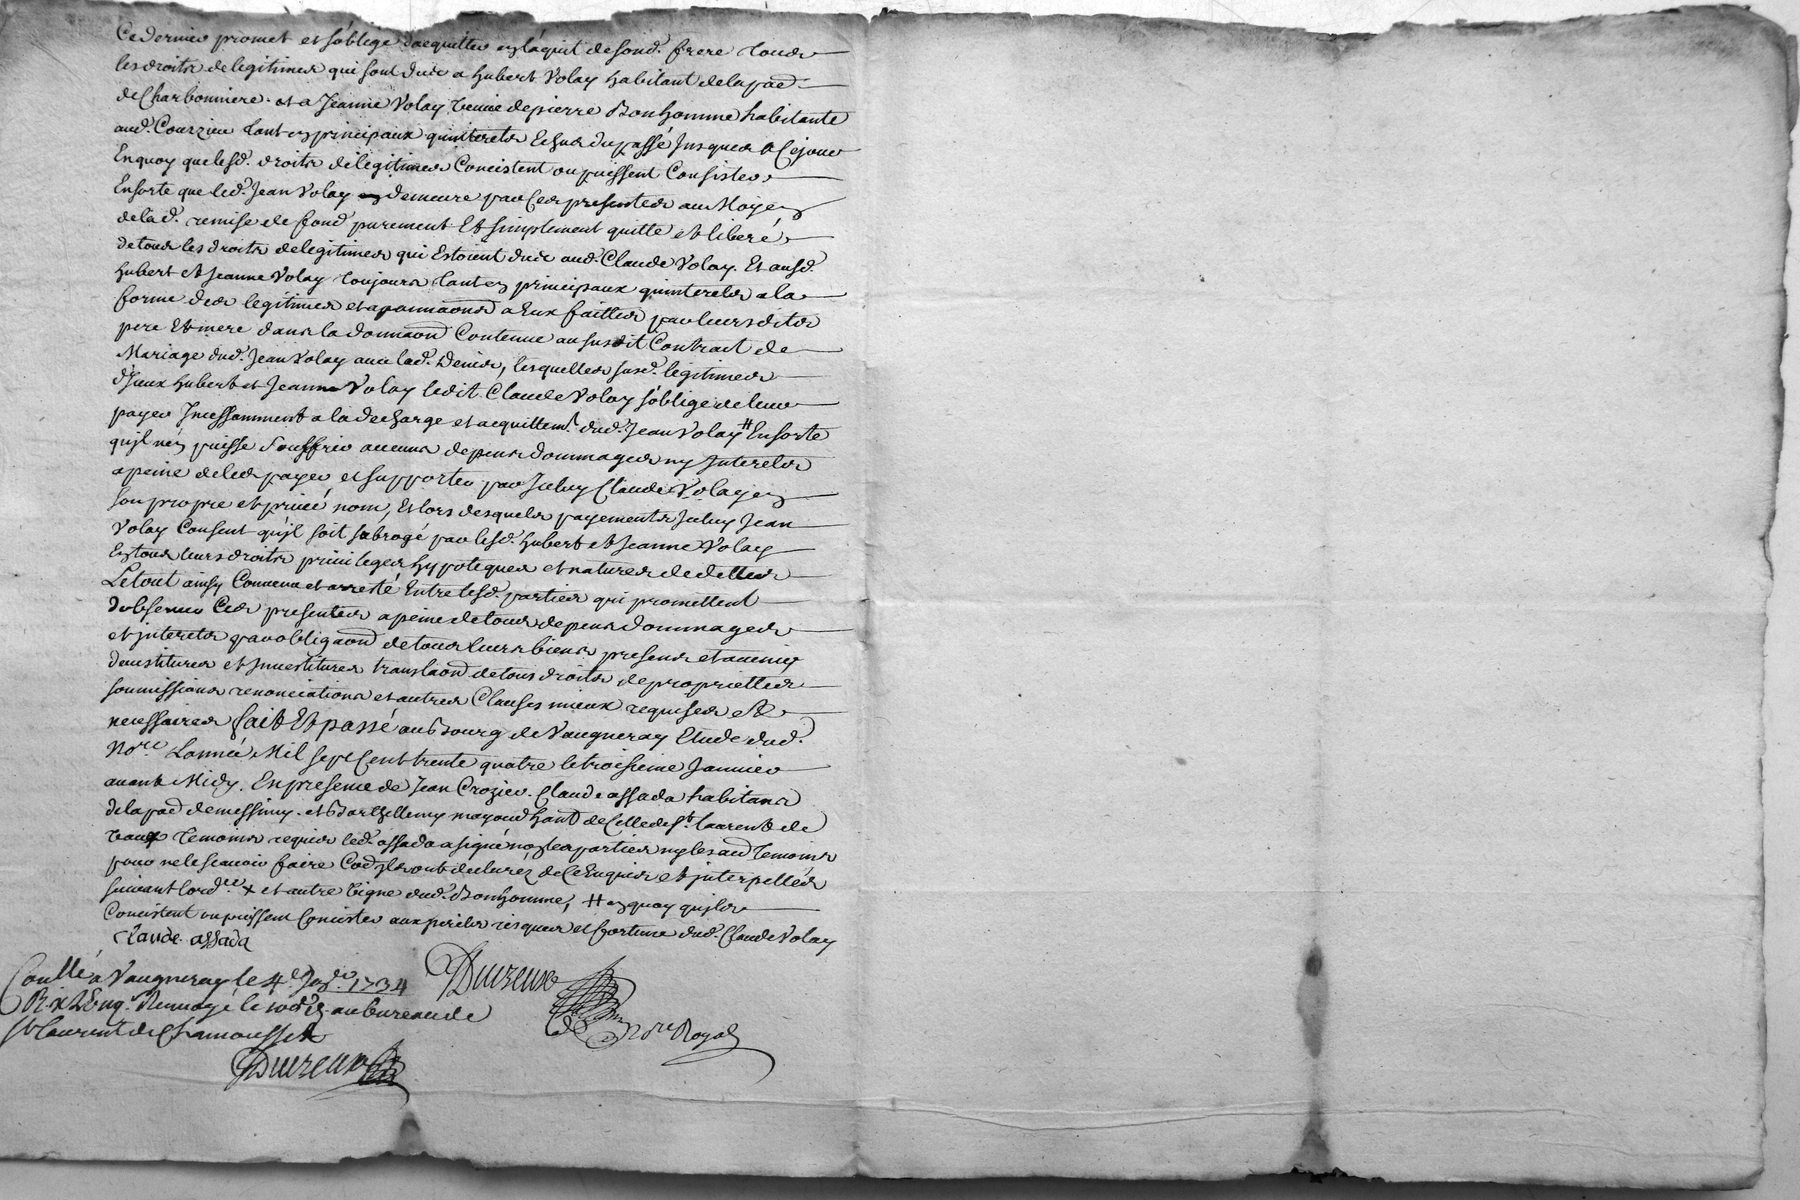 Ce dernier promet et s'oblige d'acquitter en l'aquit de son d. frere tous
les droits de legitimes qui sont dues a hubert Volay habitant de la pad.
de Charbonniere. et a Jeanne Volay veuve de pierre Bonhomme habitante
aud. Courzieu tant en principaux qu'interets Echus du passé Jusques a Ce jour
En quoy que lesd. droits de legitimes Concistent ou puissent Consister,
Ensorte que led. Jean Volay demeure par Ces presentes au Moyen
de la d. remise de fond purement Et simplement quitte et liberé,
de tous les droits de legitimes qui Estoient dues aud. Claude Volay. Et ausd.
hubert et Jeanne Volay toujours tant en principaux qu'interets a la
forme des legitimes et apannaons a Eux faittes par leurs dites
pere Et mere dans la donnaon Contenue au susdit Contract de
Mariage dud. Jean Volay avec lad. Denis, lesquelles susd. legitimes
d'Jceux hubert et Jeanne Volay ledit Claude Volay s'oblige de leur
payer Jncessamment a la decharge et acquittemt. dud. Jean Volay # Ensorte
qu'jl n'en puisse souffrir aucuns depens dommages ny Interets
a peine de les payer et supporter par Jceluy Claude Volay en
son propre et privé nom, Et lors desquels payements Jceluy Jean
Volay Consent qu'jl soit subrogé par lesd. hubert et Jeanne Volay
En tous leurs droits privileges hypoteques et natures de dettes
Le tout ainsy Convenu et arresté Entre lesd. parties qui promettent
d'observer Ces presentes a peine de tous depens dommages
et jnterets par obligaon de tous leurs biens presens et avenir
devestitures et Jnvestitures translaon de tous droits de proprietté
soumissions renonciations et autres Clauses mieux requises et
necessaires fait Et passé au Bourg de Vaugneray Etude dud.
Nore. L'année Mil sept Cent trente quatre le troisieme Janvier
avant Midy. En presence de Jean Crozier. Claude assada habitans
de la pad. de messimy. et Barthellemy mayoud hant. de Celle de St. laurent de
vaux Temoins requis led. assada a signé non les parties ny les aud. Temoins
pour ne le scavoir faire Co'ds. jls ont declarés de Ce Enquis et jnterpellés
suivant l'ordce. x et autre vigne dud. Bonhomme, # en quoy qu'jls
Concistent ou puissent Concister aux perils risques et fortune dud. Claude Volay
Claude assada
Conllé a Vaugneray le 4e. Jer. 1734
au bureau de
St laurent de Chamousset
Nore Royal